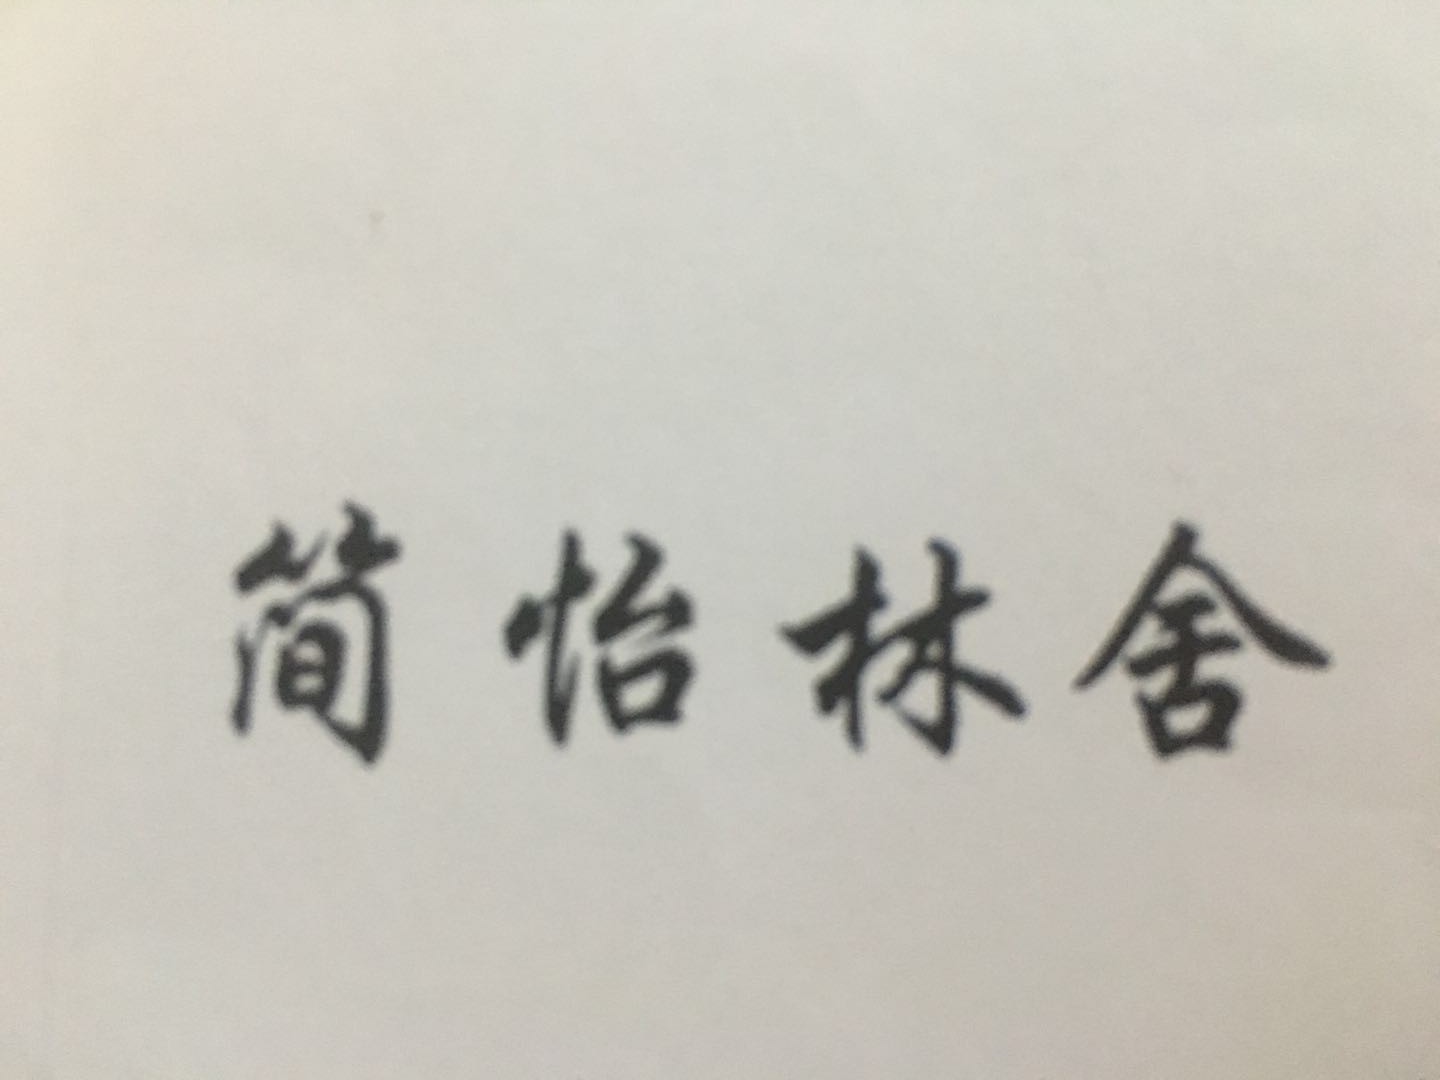 简怡林舍